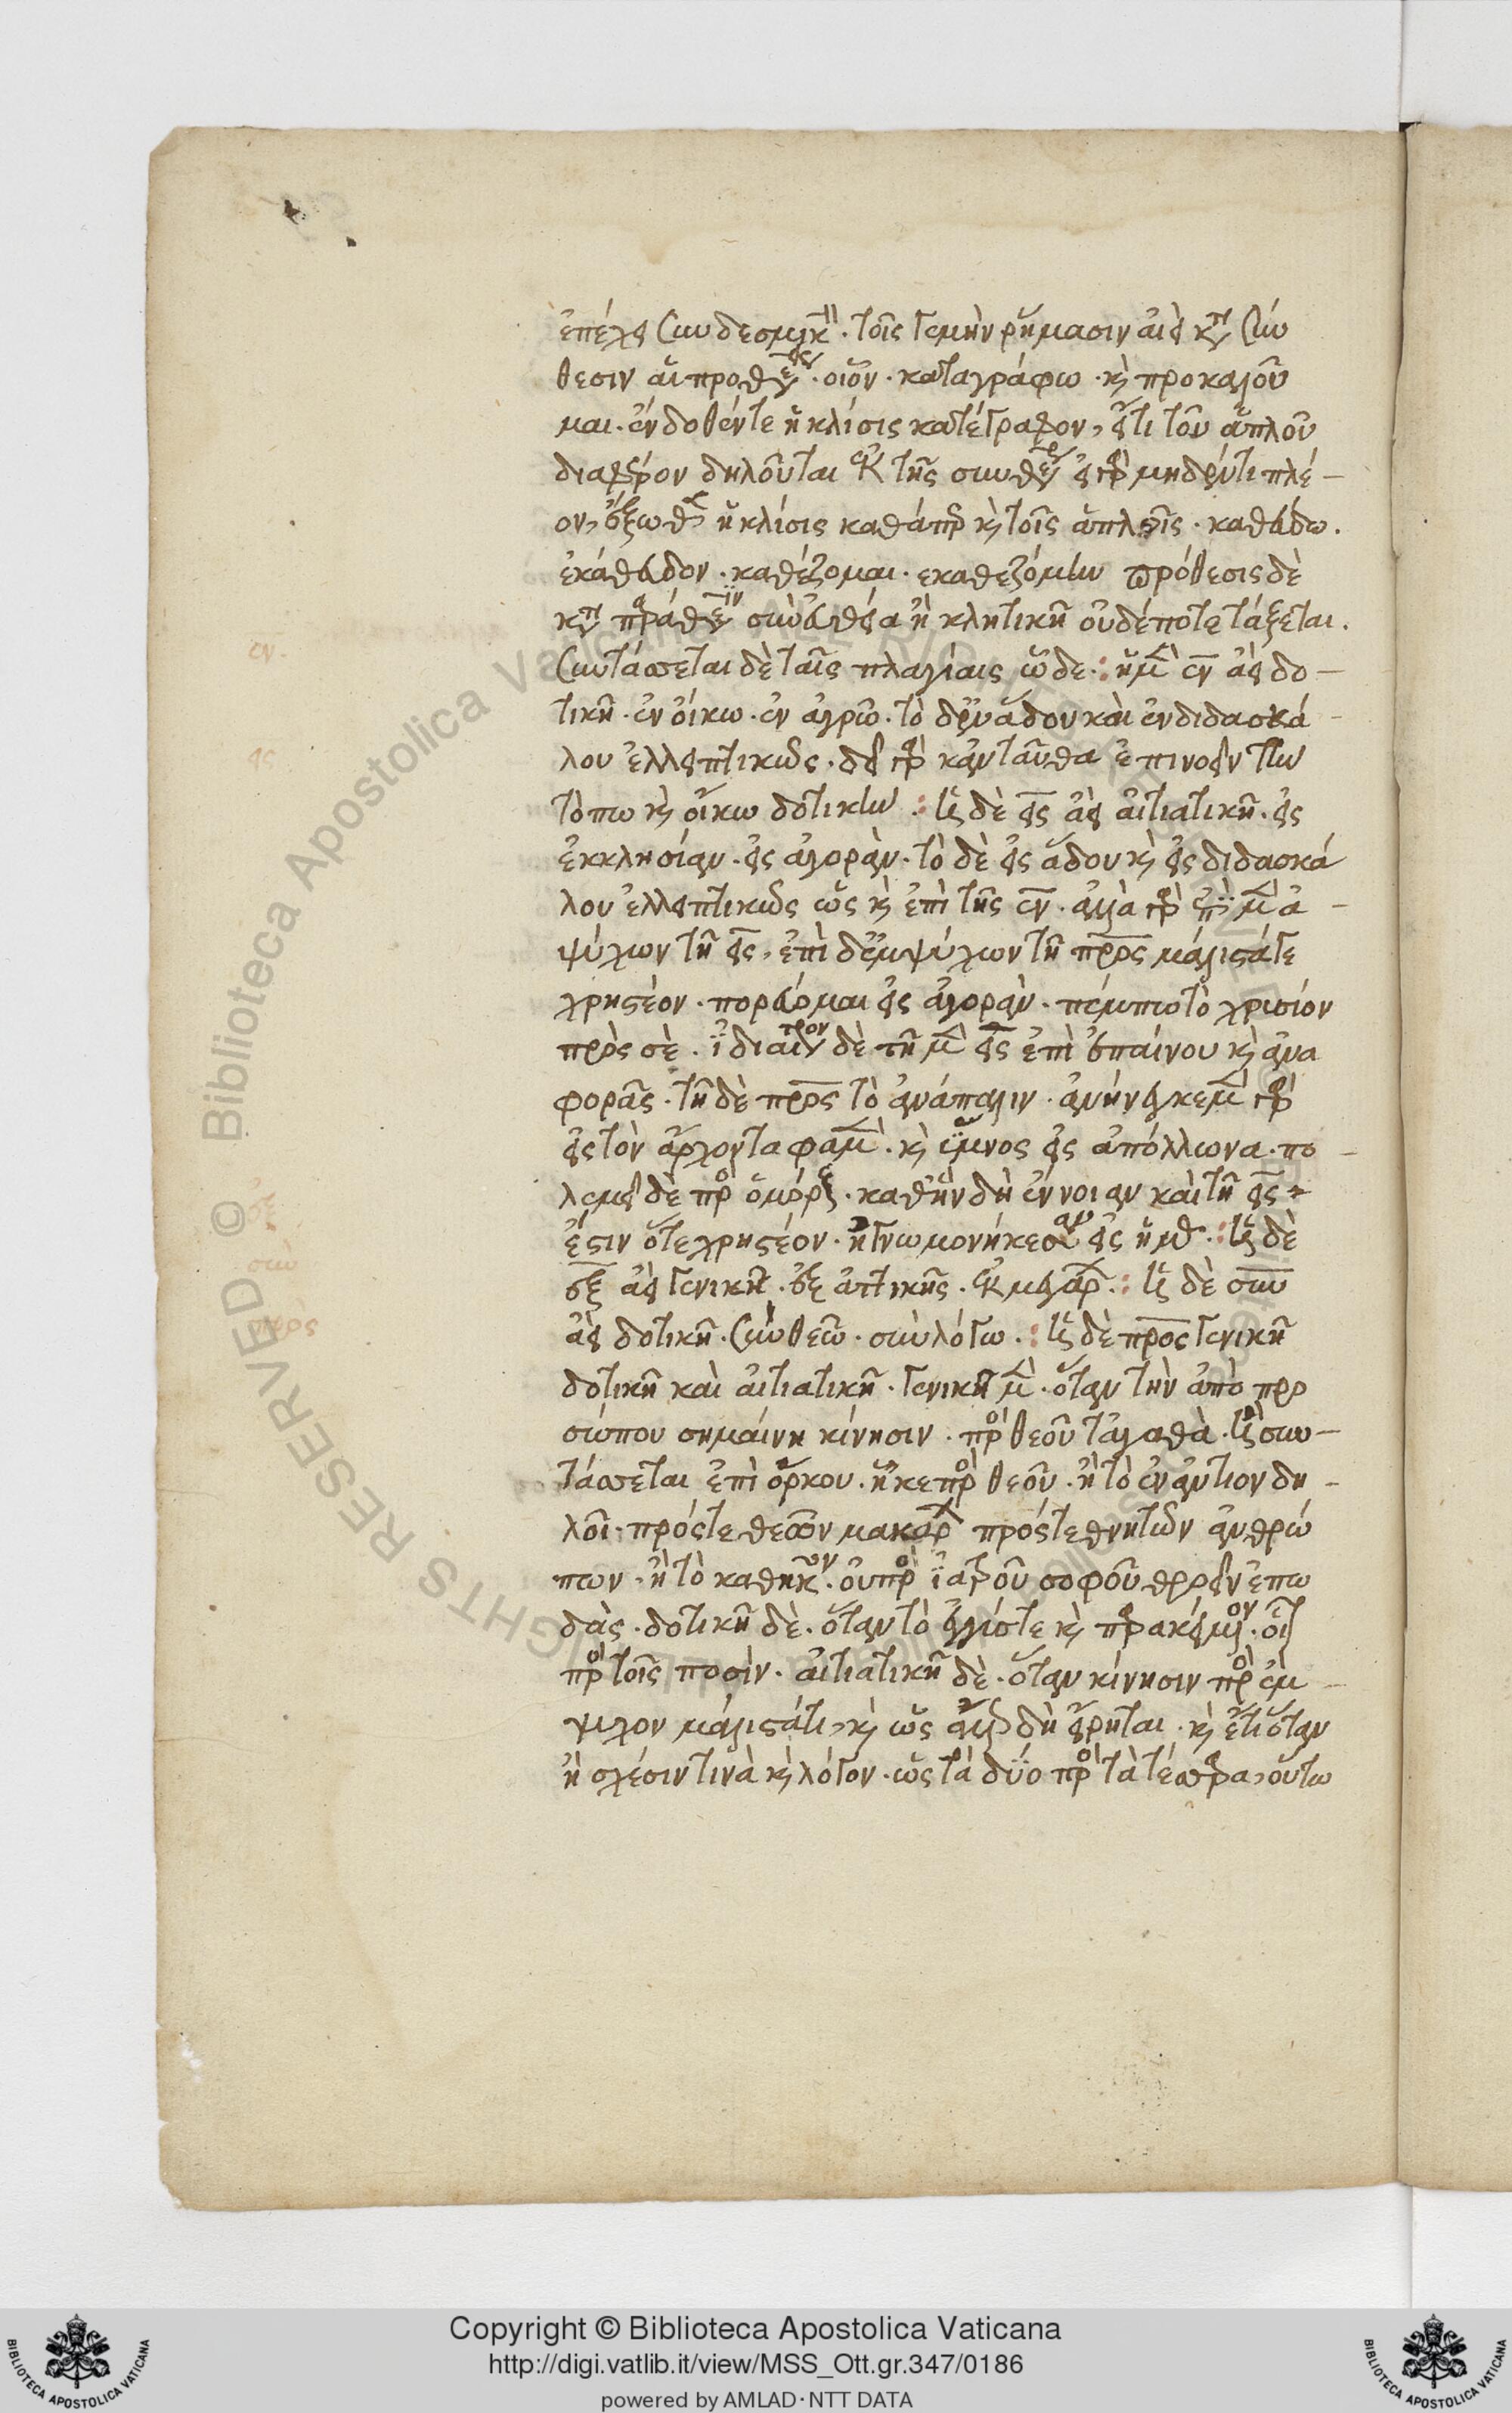 ἐπέχει συνδεσμικ. τοῖς γεμὴν ῥήμασιν αἰεὶ κατὰ σύν
θεσιν αἱ προθέσεις. οἷον. καταγράφω. καὶ προκαλοῦ
μαι. ἔνδοθέν τε ἡ κλίσις κατέγραφον, εἴ τι τοῦ ἁπλοῦ
διαφέρον δηλοῦται ἐκ τῆς συνθέσεως εἰ γὰρ μηδέν τι πλέ-
ον, ἔξωθεν ἡ κλίσις καθάπερ καὶ τοῖς ἁπλοῖς. καθεύδω.
ἐκάθευδον. καθέζομαι. εκαθεζόμην πρόθεσις δὲ
κατὰ παράθεσιν σὺν εὐθεία ἢ κλητικῆ οὐδέποτε τάξεται.
συντάσσεται δὲ ταῖς πλαγίαις ὧδε: ἡ μὲν ἐν ἀεὶ δο-
τικῆ. ἐν οἴκω. ἐν ἀγρῶ. τὸ δὲ ἐν ἅδου καὶ ἐν διδασκά-
λου ἐλλειπτικῶς. δεῖ γὰρ κἀνταῦθα ἐπινοεῖν τὴν
τόπω καὶ οἴκω δοτικήν: ἡ δὲ εἰς ἀεὶ αἰτιατικῆ. εἰς
ἐκκλησίαν. εἰς ἀγοράν. τὸ δὲ εἰς ἅδου καὶ εἰς διδασκά
λου ἐλλειπτικῶς ὡς καὶ ἐπὶ τῆς ἐν. ἀλλὰ γὰρ ἐπὶ μὲν ἀ-
ψύχων τῆ εἰς, ἐπὶ δὲ ἐμψύχων τῆ πρὸς μάλιστά γε
χρηστέον. πορεύομαι εἰς ἀγοράν. πέμπω τὸ χρυσίον
πρὸς σέ. ἰδιαίτερον δὲ τῆ μὲν εἰς ἐπὶ ἐπαίνου καὶ ἀνα
φορᾶς. τῆ δὲ πρὸς τὸ ἀνάπαλιν. ἀνήνεγκε μὲν γὰρ
εἰς τὸν ἄρχοντα φαμὲν. καὶ ὕμνος εἰς ἀπόλλωνα. πο-
λεμεῖ δὲ πρὸς ὁμόρους. καθ' ἣν δὴ ἔννοιαν καὶ τῆ εἰς
ἔστιν ὅτε χρηστέον. ἡ γνώμον ἥκεσαν εἰς ἡμᾶς: ἡ δὲ
ἐξ ἀεὶ γενικῆ. ἐξ ἀττικῆς. ἐκ μεγάρων: ἡ δὲ σὺν
ἀεὶ δοτικῆ. σὺν θεῶ. σὺν λόγω: ἡ δὲ πρὸς γενικῆ
δοτικῆ καὶ αἰτιατικῆ. γενικῆ μὲν. ὅταν τὴν ἀπὸ προ
σώπου σημαίνη κίνησιν. πρὸς θεοῦ τἀγαθὰ. ἢ συν-
τάσσεται ἐπὶ ὅρκου. ἧκε πρὸς θεοῦ. ἢ τὸ ἐναντίον δη-
λοῖ. πρός τε θεῶν μακάρων πρός τε θνητῶν ἀνθρώ
πων. ἢ τὸ καθῆκον. οὐ πρὸς ἰατροῦ σοφοῦ θροεῖν ἐπω
δὰς. δοτικῆ δὲ. ὅταν τὸ ἐγγίς τε καὶ παρακείμενον. οἷον
πρὸς τοῖς ποσὶν. αἰτιατικῆ δὲ. ὅταν κίνησιν πρὸς ἔμ-
ψυχον μάλιστά τι, καὶ ὡς ἄνω δὴ εἴρηται. καὶ ἔτι ὅταν
ἢ σχέσιν τινὰ καὶ λόγον. ὡς τὰ δύο πρὸς τὰ τέσσαρα, οὕτω
ἐν
εἰς
ἐξ
σὺν
πρὸς
Copyright © Biblioteca Apostolica Vaticana
http://digi.vatlib.it/view/MSS_Ott.gr.347/0186
powered by AMLAD·NTT DATA